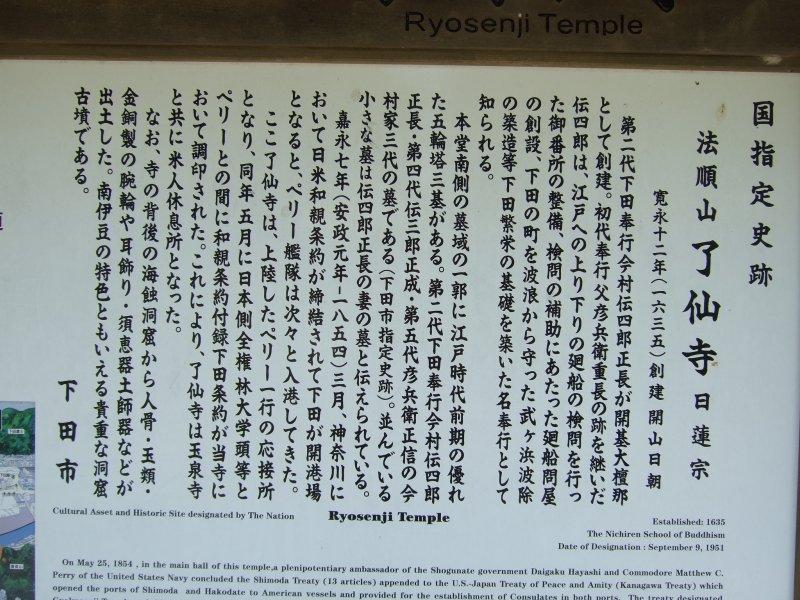 Ryosenji Temple
国指定史跡
法順山 了仙寺 日蓮宗
寛永十二年(一六三五)創建 開山日朝
第二代下田奉行今村伝四郎正長が開基大檀那
として創建。初代奉行父彦兵衛重長の跡を継いだ
伝四郎は、江戸への上り下りの廻船の検問を行っ
た御番所の整備、検問の補助にあたった廻船問屋
の創設、下田の町を波浪から守った武ヶ浜波除
の築造等下田繁栄の基礎を築いた名奉行として
知られる。
本堂南側の墓域の一郭に江戸時代前期の優れ
た五輪塔三基がある。第二代下田奉行今村伝四郎
正長・第四代伝三郎正成・第五代彦兵衛正信の今
村家三代の墓である(下田市指定史跡)。並んでいる
小さな墓は伝四郎正長の妻の墓と伝えられている。
嘉永七年(安政元年-一八五四)三月、神奈川に
おいて日米和親条約が締結されて下田が開港場
となると、ペリー艦隊は次々と入港してきた。
ここ了仙寺は、上陸したペリー一行の応接所
となり、同年五月に日本側全権 林大学頭等と
ペリーとの間に和親条約付録下田条約が当寺に
おいて調印された。これにより、了仙寺は玉泉寺
と共に米人休息所となった。
なお、寺の背後の海蝕洞窟から人骨・玉類・
金銅製の腕輪や耳飾り・須恵器土師器などが
出土した。南伊豆の特色ともいえる貴重な洞窟
古墳である。
下田市
Cultural Asset and Historic Site designated by The Nation
Ryosenji Temple
Established: 1635
The Nichiren School of Buddhism
Date of Designation : September 9, 1951
On May 25, 1854 , in the main hall of this temple,a plenipotentiary ambassador of the Shogunate government Daigaku Hayashi and Commodore Matthew C.
Perry of the United States Navy concluded the Shimoda Treaty (13 articles) appended to the U.S.-Japan Treaty of Peace and Amity (Kanagawa Treaty) which
opened the ports of Shimoda and Hakodate to American vessels and provided for the establishment of Consulates in both ports. The treaty designated